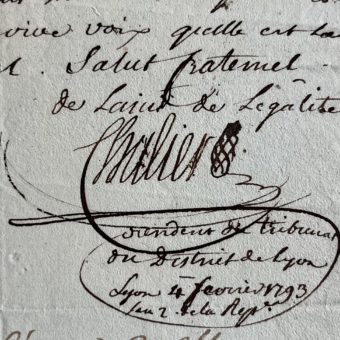 vive voix qu'elle est la
Salut fraternel.
de L'ami de L'egalité
Chalier
président du tribunal
du District de Lyon
Lyon 4 fevrier 1793
l'an 2. de la Rep.